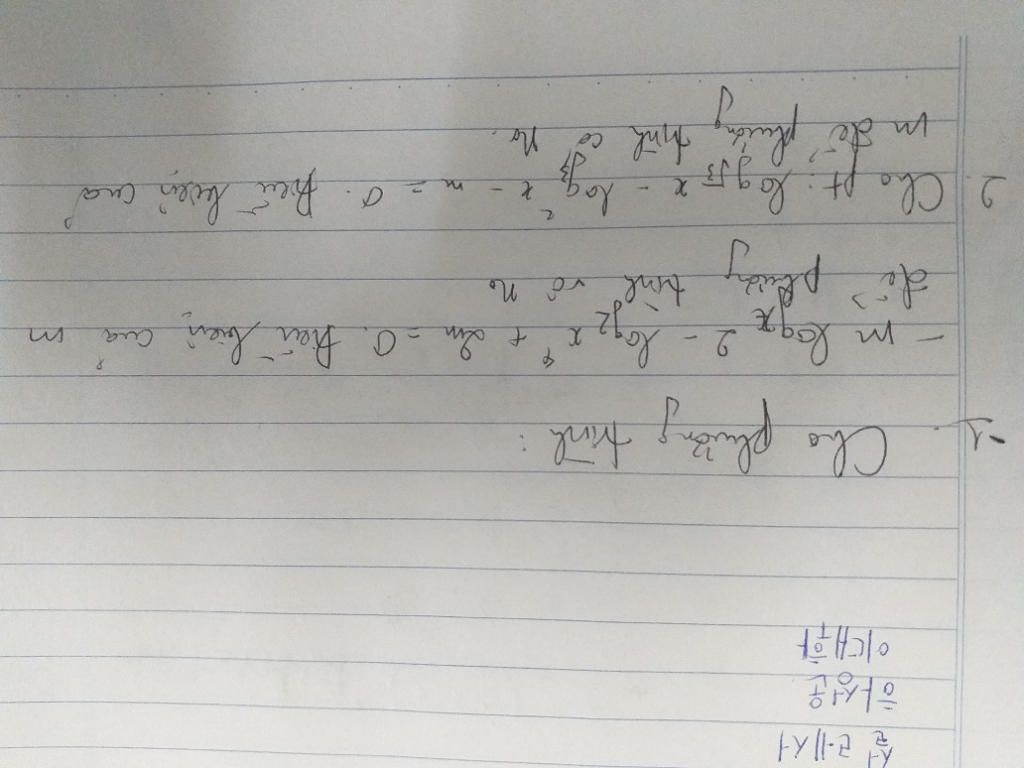 하성운
이대휘
1. Cho phương trình:
- m logₓ 2 - log₂ x⁴ + 2m = 0. Điều kiện của m
để phương trình vô no
2. Cho pt: log√3 x - log²√3 x - m = 0. Điều kiện của
m để phương trình có no.